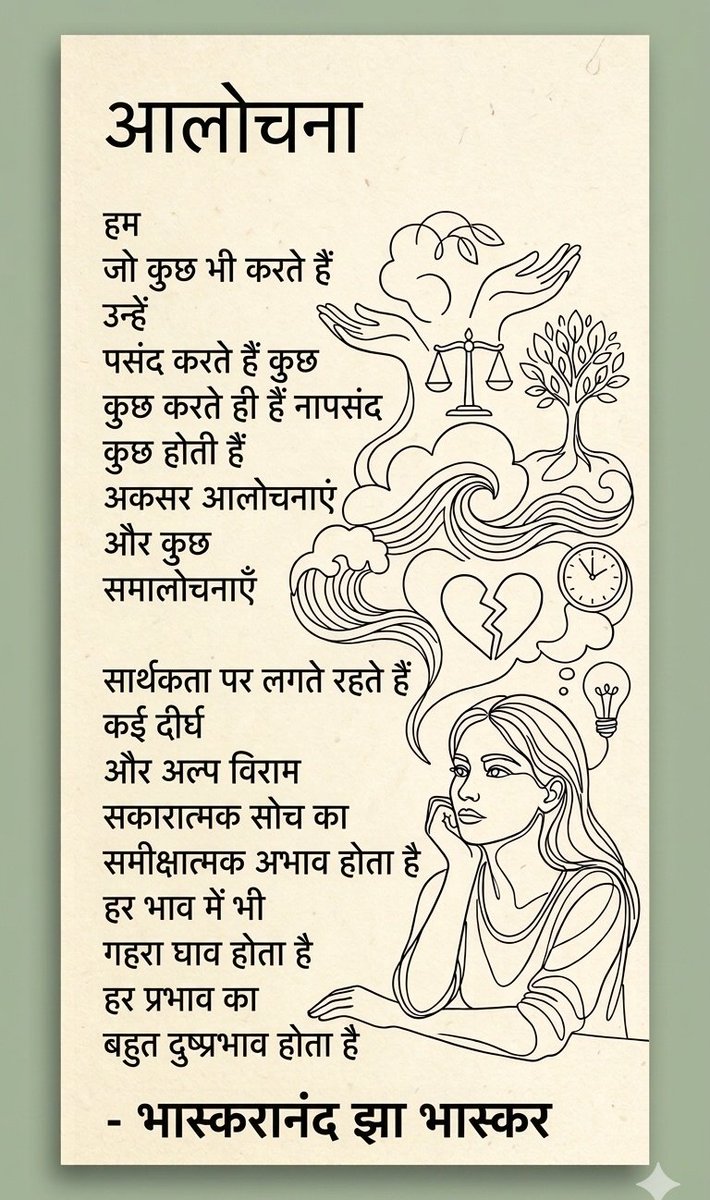 आलोचना
हम
जो कुछ भी करते हैं
उन्हें
पसंद करते हैं कुछ
कुछ करते ही हैं नापसंद
कुछ होती हैं
अकसर आलोचनाएं
और कुछ
समालोचनाएँ
सार्थकता पर लगते रहते हैं
कई दीर्घ
और अल्प विराम
सकारात्मक सोच का
समीक्षात्मक अभाव होता है
हर भाव में भी
गहरा घाव होता है
हर प्रभाव का
बहुत दुष्प्रभाव होता है
- भास्करानंद झा भास्कर